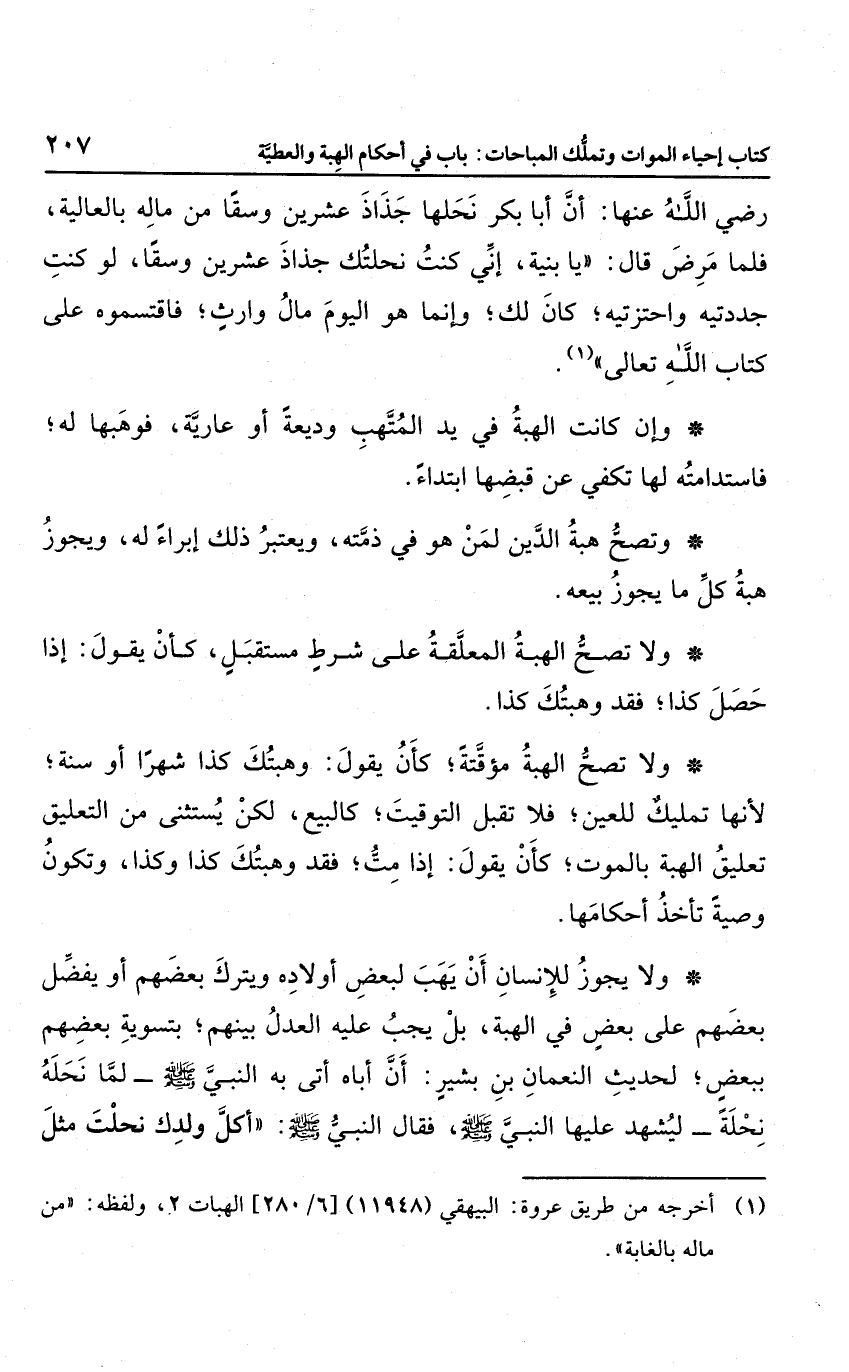 كتاب إحياء الموات وتملُّك المباحات: باب في أحكام الهِبة والعطيَّة ٢٠٧
رضي اللَّهُ عنها: أنَّ أبا بكر نَحَلها جَذَاذَ عشرين وسقًا من مالِه بالعالية،
فلما مَرِضَ قال: «يا بنية، إنِّي كنتُ نحلتُك جذاذَ عشرين وسقًا، لو كنتِ
جددتيه واحتزتيه؛ كانَ لك؛ وإنما هو اليومَ مالُ وارثٍ؛ فاقتسموه على
كتاب اللَّهِ تعالى»(١).
* وإن كانت الهبةُ في يد المُتَّهبِ وديعةً أو عاريَّة، فوهَبها له؛
فاستدامتُه لها تكفي عن قبضِها ابتداءً.
* وتصحُّ هبةُ الدَّين لمَنْ هو في ذمَّته، ويعتبرُ ذلك إبراءً له، ويجوزُ
هبةُ كلِّ ما يجوزُ بيعه.
* ولا تصحُّ الهبةُ المعلَّقةُ على شرطٍ مستقبَلٍ، كأنْ يقولَ: إذا
حَصَلَ كذا؛ فقد وهبتُكَ كذا.
* ولا تصحُّ الهبةُ مؤقَّتةً؛ كأَنُ يقولَ: وهبتُكَ كذا شهرًا أو سنة؛
لأنها تمليكٌ للعين؛ فلا تقبل التوقيتَ؛ كالبيع، لكنْ يُستثنى من التعليق
تعليقُ الهبة بالموت؛ كأَنْ يقولَ: إذا مِتُّ؛ فقد وهبتُكَ كذا وكذا، وتكونُ
وصيةً تأخذُ أحكامَها.
* ولا يجوزُ للإنسانِ أَنْ يَهَبَ لبعضِ أولادِه ويتركَ بعضَهم أو يفضِّل
بعضَهم على بعضٍ في الهبة، بلْ يجبُ عليه العدلُ بينهم؛ بتسويةِ بعضِهم
ببعضٍ؛ لحديثِ النعمانِ بنِ بشيرٍ: أَنَّ أباه أتى به النبيَّ ﷺ ـ لمَّا نَحَلَهُ
نِحْلَةً ـ ليُشهد عليها النبيَّ ﷺ، فقال النبيُّ ﷺ: «أكلَّ ولدِك نحلْتَ مثلَ
(١) أخرجه من طريق عروة: البيهقي (١١٩٤٨) [٦/ ٢٨٠] الهبات ٢، ولفظه: «من
ماله بالغابة».